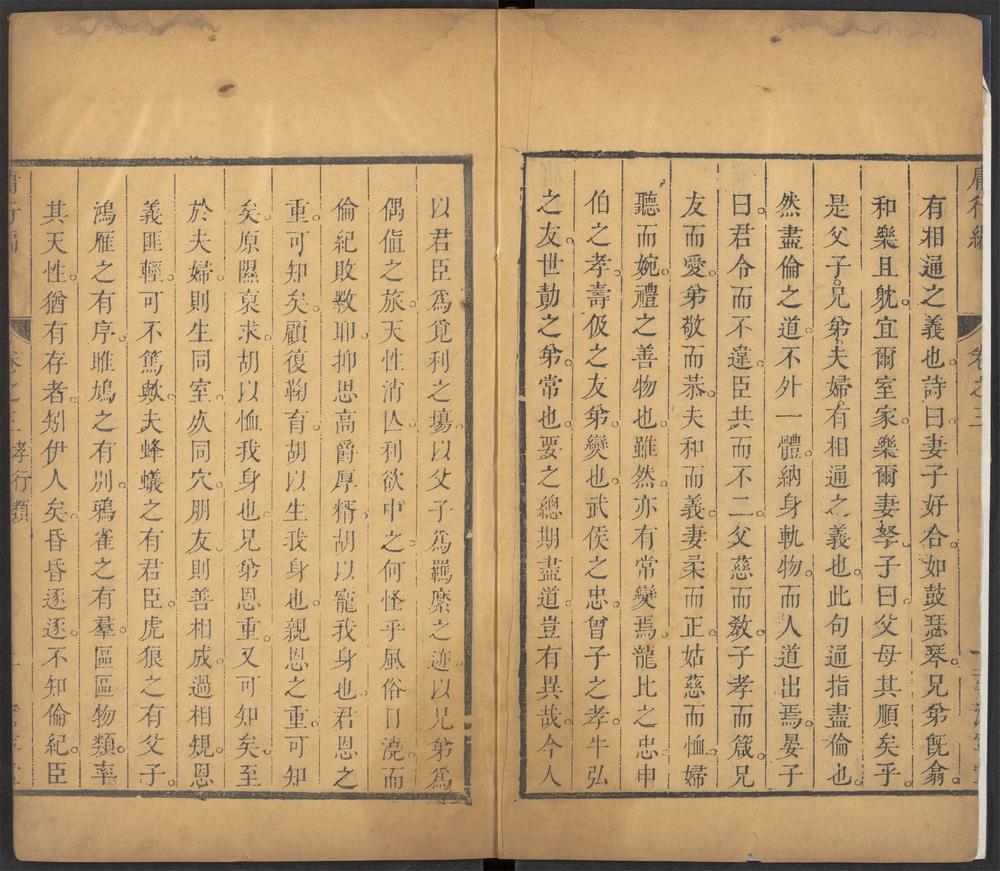 有相通之義也。詩曰。妻子好合。如鼓瑟琴。兄弟既翕。
和樂且躭。宜爾室家。樂爾妻孥。子曰。父母其順矣乎。
是父子。兄弟。夫婦。有相通之義也。此句通指盡倫也。
然盡倫之道。不外一體。納身軌物。而人道出焉。晏子
曰。君令而不違。臣共而不二。父慈而敎。子孝而箴。兄
友而愛。弟敬而恭。夫和而義。妻柔而正。姑慈而恤。婦
聽而婉。禮之善物也。雖然。亦有常變焉。龍比之忠。申
伯之孝。壽伋之友弟。變也。武侯之忠。曾子之孝。牛弘
之友。世勣之弟。常也。要之總期盡道。豈有異哉。今人
卷之三
以君臣爲覓利之塲。以父子爲羈縻之迹。以兄弟爲
偶値之旅。天性消亾。利欲中之。何怪乎風俗日澆。而
倫紀敗斁耶。抑思高爵厚糈。胡以寵我身也。君恩之
重可知矣。顧復鞠育。胡以生我身也。親恩之重。可知
矣。原隰裒求。胡以恤我身也。兄弟恩重。又可知矣。至
於夫婦。則生同室。死同穴。朋友。則善相成。過相規。恩
義匪輕。可不篤歟。夫蜂蟻之有君臣。虎狼之有父子。
鴻雁之有序。雎鳩之有別。鴉雀之有羣。區區物類。率
其天性。猶有存者。矧伊人矣。昏昏逐逐。不知倫紀。臣
卷之三 孝行類